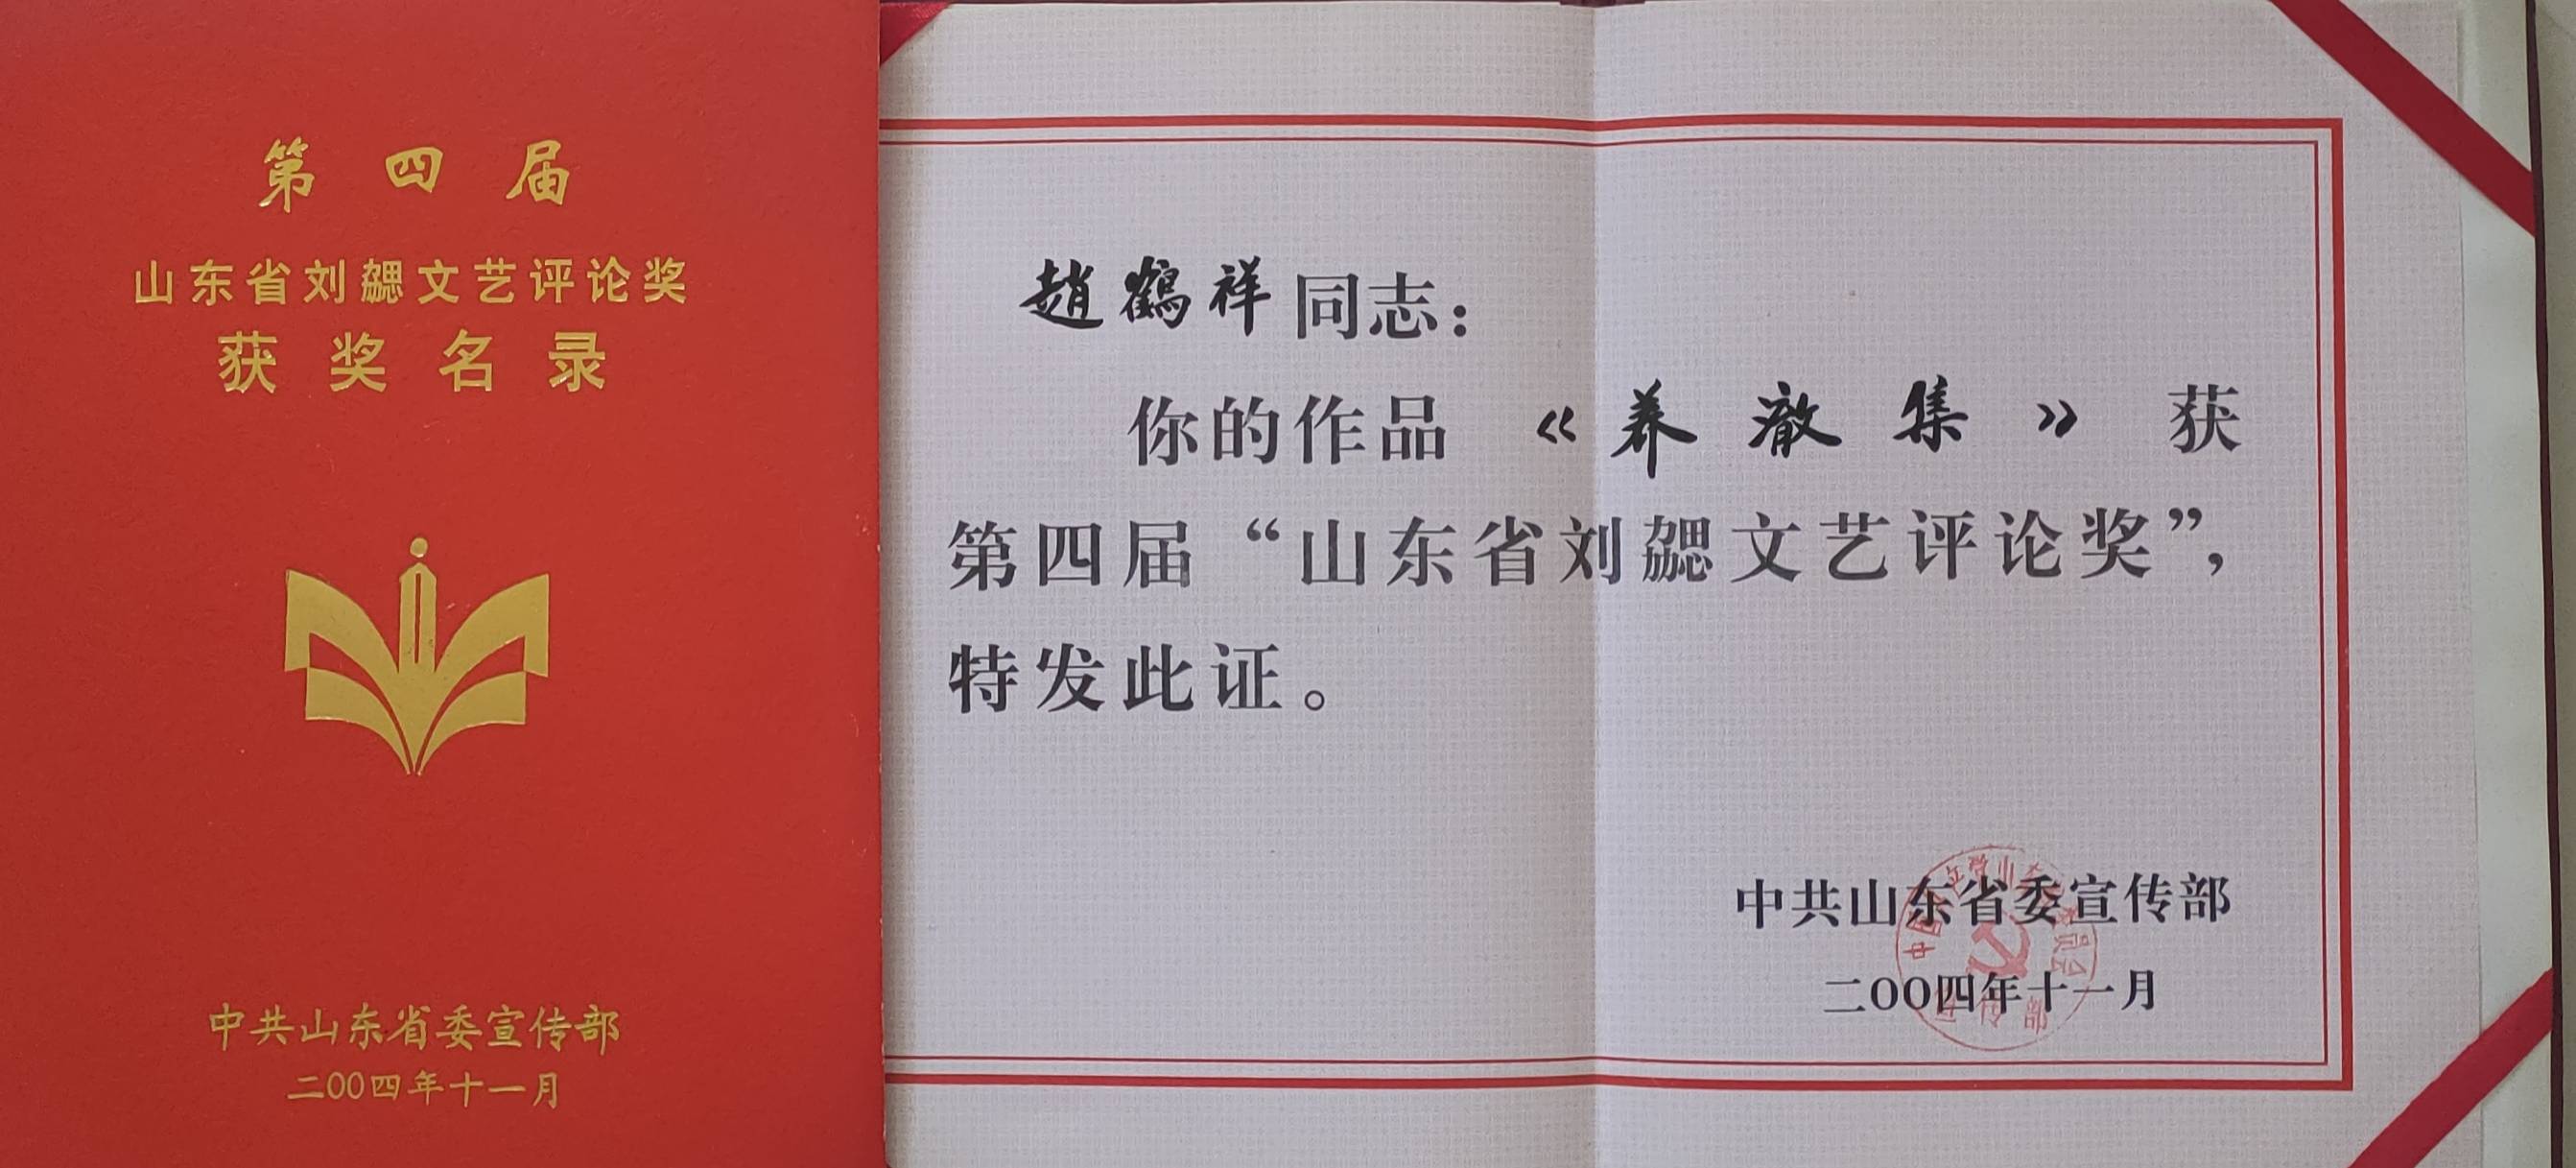 第四届
山东省刘勰文艺评论奖
获奖名录
中共山东省委宣传部
二〇〇四年十一月
趙鶴祥同志：
你的作品《养澈集》获
第四届“山东省刘勰文艺评论奖”，
特发此证。
中共山东省委宣传部
二〇〇四年十一月